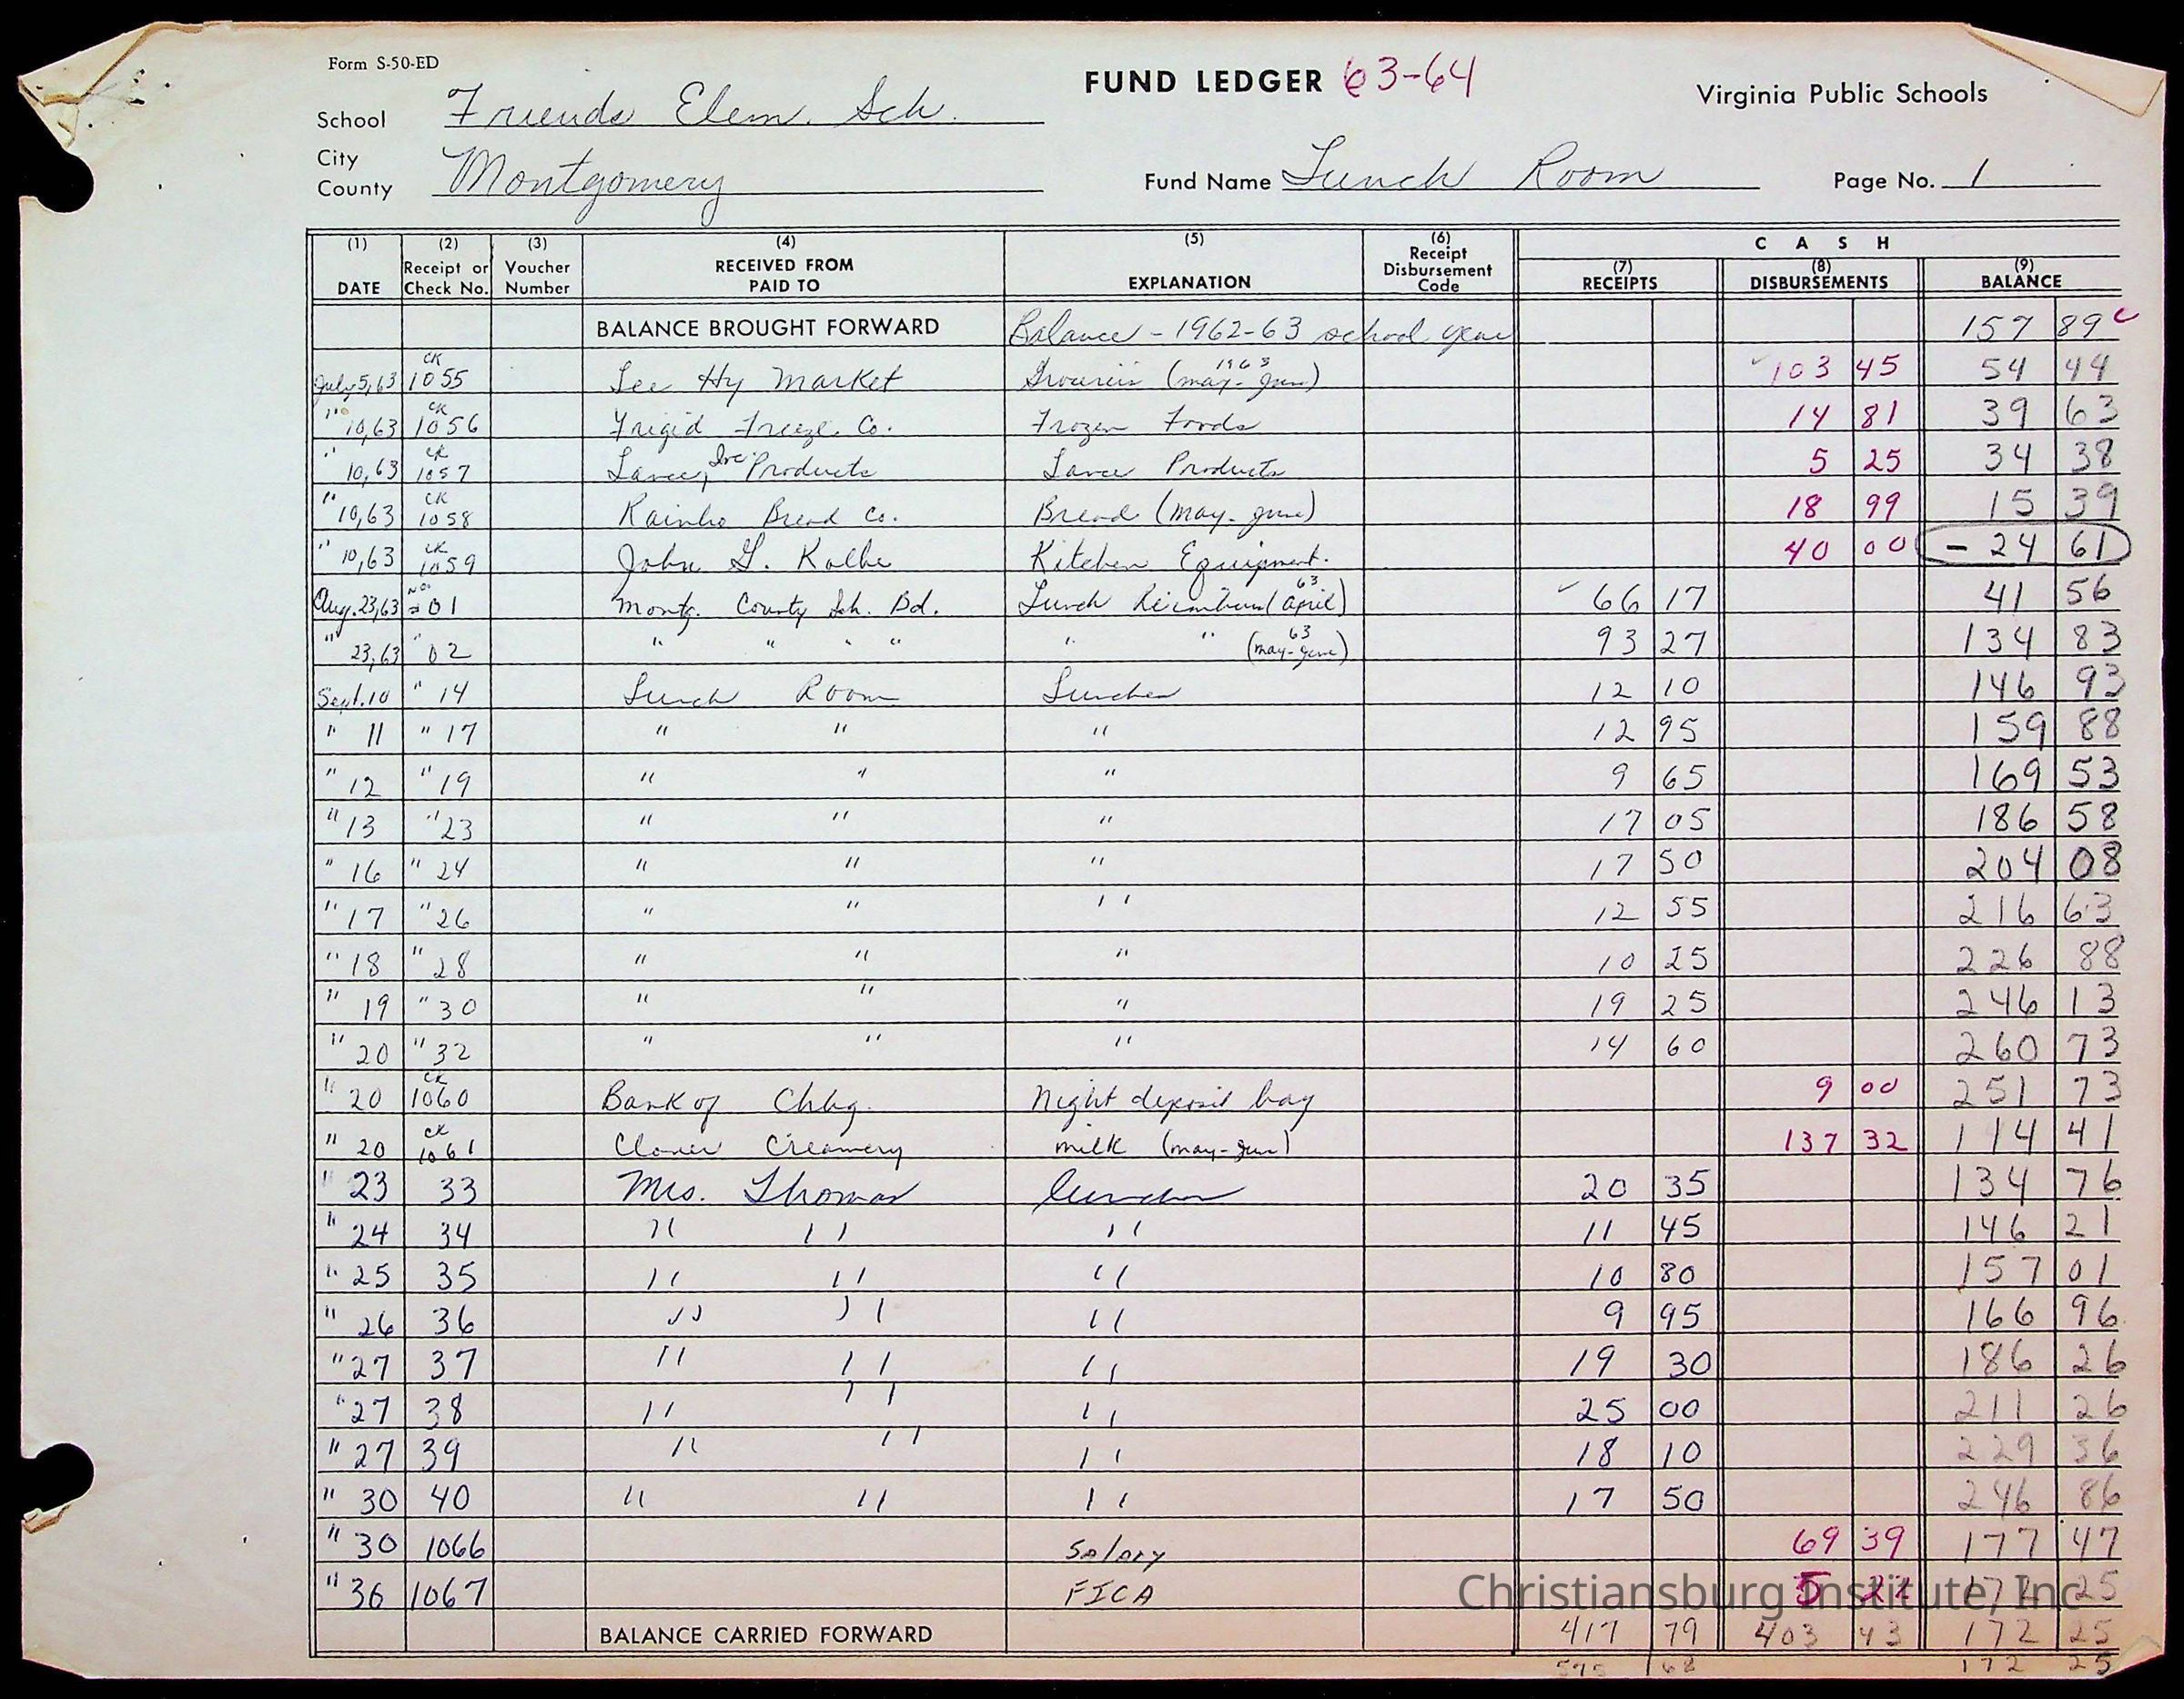 Form S-50-ED
FUND LEDGER 63-64
Virginia Public Schools
School Friends Elem. Sch.
City
County Montgomery
Fund Name Lunch Room
Page No. 1
(1) (2) (3) (4) (5) (6) C A S H
DATE Receipt or Check No. Voucher Number RECEIVED FROM PAID TO EXPLANATION Receipt Disbursement Code (7) RECEIPTS (8) DISBURSEMENTS (9) BALANCE
BALANCE BROUGHT FORWARD Balance - 1962-63 school year 157 89
July 5, 63 CK 1055 Lee Hy Market Groceries (may-June) 1963 103 45 54 44
" 10, 63 CK 1056 Frigid Freeze Co. Frozen Foods 14 81 39 63
" 10, 63 CK 1057 Lance, Inc. Products Lance Products 5 25 34 38
" 10, 63 CK 1058 Rainbo Bread Co. Bread (may-June) 18 99 15 39
" 10, 63 CK 1059 John G. Kolbe Kitchen Equipment. 40 00 - 24 61
Aug. 23, 63 No. 01 Montg. County Sch. Bd. Lunch Reimburs (April) 63 66 17 41 56
" 23, 63 " 02 " " " " " " (may-June) 63 93 27 134 83
Sept. 10 " 14 Lunch Room Lunches 12 10 146 93
" 11 " 17 " " " 12 95 159 88
" 12 " 19 " " " 9 65 169 53
" 13 " 23 " " " 17 05 186 58
" 16 " 24 " " " 17 50 204 08
" 17 " 26 " " " 12 55 216 63
" 18 " 28 " " " 10 25 226 88
" 19 " 30 " " " 19 25 246 13
" 20 " 32 " " " 14 60 260 73
" 20 CK 1060 Bank of Chbg. Night deposit bag 9 00 251 73
" 20 CK 1061 Clover Creamery milk (may-June) 137 32 114 41
" 23 33 Mrs. Thomas lunches 20 35 134 76
" 24 34 " " " 11 45 146 21
" 25 35 " " " 10 80 157 01
" 26 36 " " " 9 95 166 96
" 27 37 " " " 19 30 186 26
" 27 38 " " " 25 00 211 26
" 27 39 " " " 18 10 229 36
" 30 40 " " " 17 50 246 86
" 30 1066 Salary 69 39 177 47
" 30 1067 FICA 5 22 172 25
Christiansburg Institute, Inc
BALANCE CARRIED FORWARD 417 79 403 43 172 25
575 68 172 25